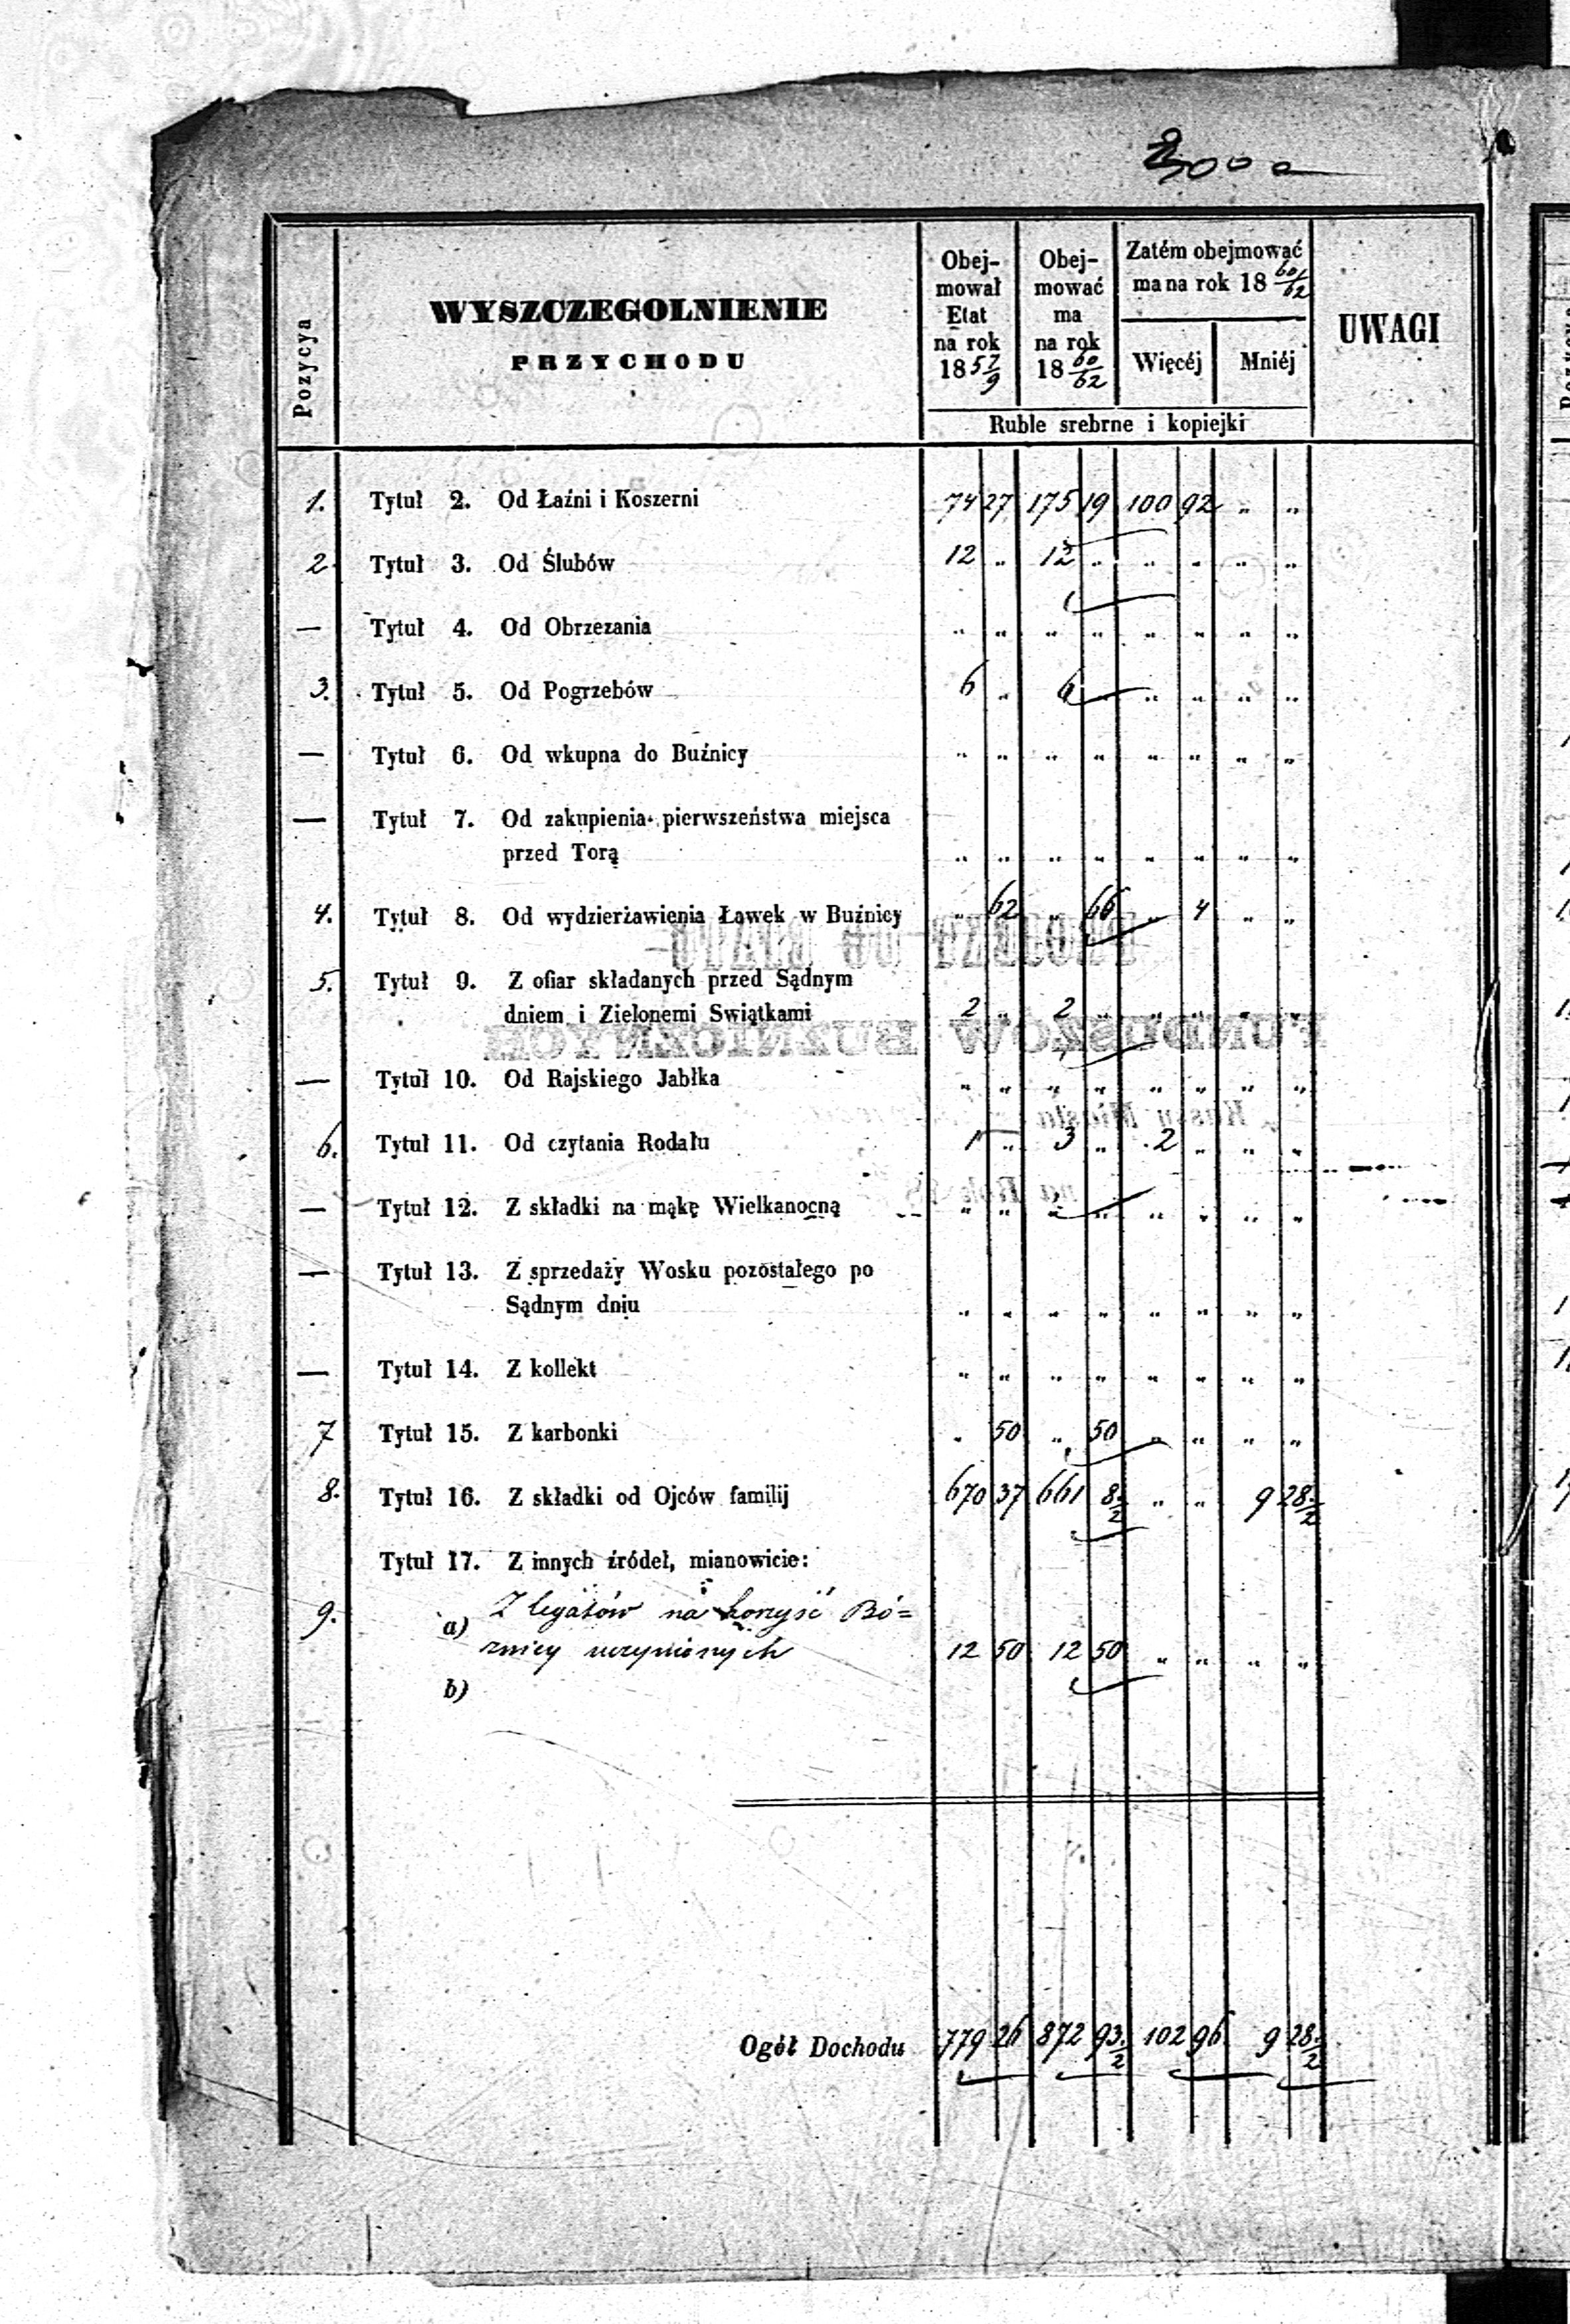 Pozycya
WYSZCZEGOLNIENIE
PRZYCHODU
Obej-
mował
Etat
na rok
18 57/9
Obej-
mować
ma
na rok
18 60/62
Zatém obejmować
ma na rok 18 60/62
Więcéj Mniéj
UWAGI
Ruble srebrne i kopiejki
1. Tytuł 2. Od Łaźni i Koszerni 74 27 175 19 100 92 „ „
2. Tytuł 3. Od Ślubów 12 „ 12 „ „ „ „ „
— Tytuł 4. Od Obrzezania „ „ „ „ „ „ „ „
3. Tytuł 5. Od Pogrzebów 6 „ 6 „ „ „ „ „
— Tytuł 6. Od wkupna do Buźnicy „ „ „ „ „ „ „ „
— Tytuł 7. Od zakupienia pierwszeństwa miejsca
przed Torą „ „ „ „ „ „ „ „
4. Tytuł 8. Od wydzierżawienia Ławek w Buźnicy „ 62 „ 66 „ 4 „ „
5. Tytuł 9. Z ofiar składanych przed Sądnym
dniem i Zielonemi Swiątkami 2 „ 2 „ „ „ „ „
— Tytuł 10. Od Rajskiego Jabłka „ „ „ „ „ „ „ „
6. Tytuł 11. Od czytania Rodału 1 „ 3 „ 2 „ „ „
— Tytuł 12. Z składki na mąkę Wielkanocną „ „ „ „ „ „ „ „
— Tytuł 13. Z sprzedaży Wosku pozostałego po
Sądnym dniu „ „ „ „ „ „ „ „
— Tytuł 14. Z kollekt „ „ „ „ „ „ „ „
7 Tytuł 15. Z karbonki „ 50 „ 50 „ „ „ „
8. Tytuł 16. Z składki od Ojców familij 670 37 661 8 ./2 „ „ 9 28 ./2
Tytuł 17. Z innych źródeł, mianowicie:
9. a) Z legatów na korzyść Bó=
źnicy uczynionych 12 50 12 50 „ „ „ „
b)
Ogół Dochodu 779 26 872 93 ./2 102 96 9 28 ./2